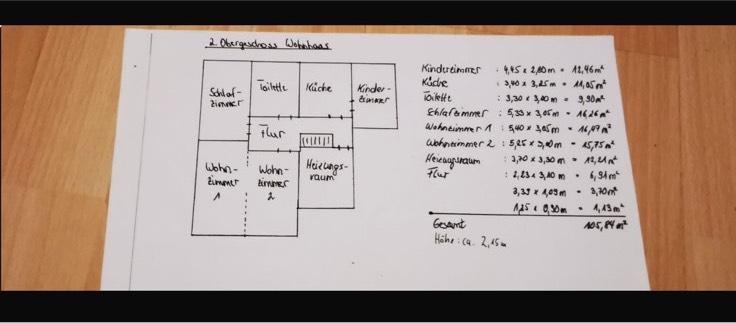 2. Obergeschoss Wohnhaus
Schlaf-
zimmer
Toilette
Küche
Kinder-
zimmer
Flur
Wohn-
zimmer
1
Wohn-
zimmer
2
Heizungs-
raum
Kinderzimmer : 4,45 x 2,80 m = 12,46 m²
Küche : 3,40 x 3,25 m = 11,05 m²
Toilette : 3,30 x 3,00 m = 9,90 m²
Schlafzimmer : 5,33 x 3,05 m = 16,26 m²
Wohnzimmer 1 : 5,40 x 3,05 m = 16,47 m²
Wohnzimmer 2 : 5,25 x 3,00 m = 15,75 m²
Heizungsraum : 3,70 x 3,30 m = 12,21 m²
Flur : 2,23 x 3,10 m = 6,91 m²
3,39 x 1,09 m = 3,70 m²
1,25 x 0,90 m = 1,13 m²
Gesamt 105,84 m²
Höhe : ca. 2,15 m